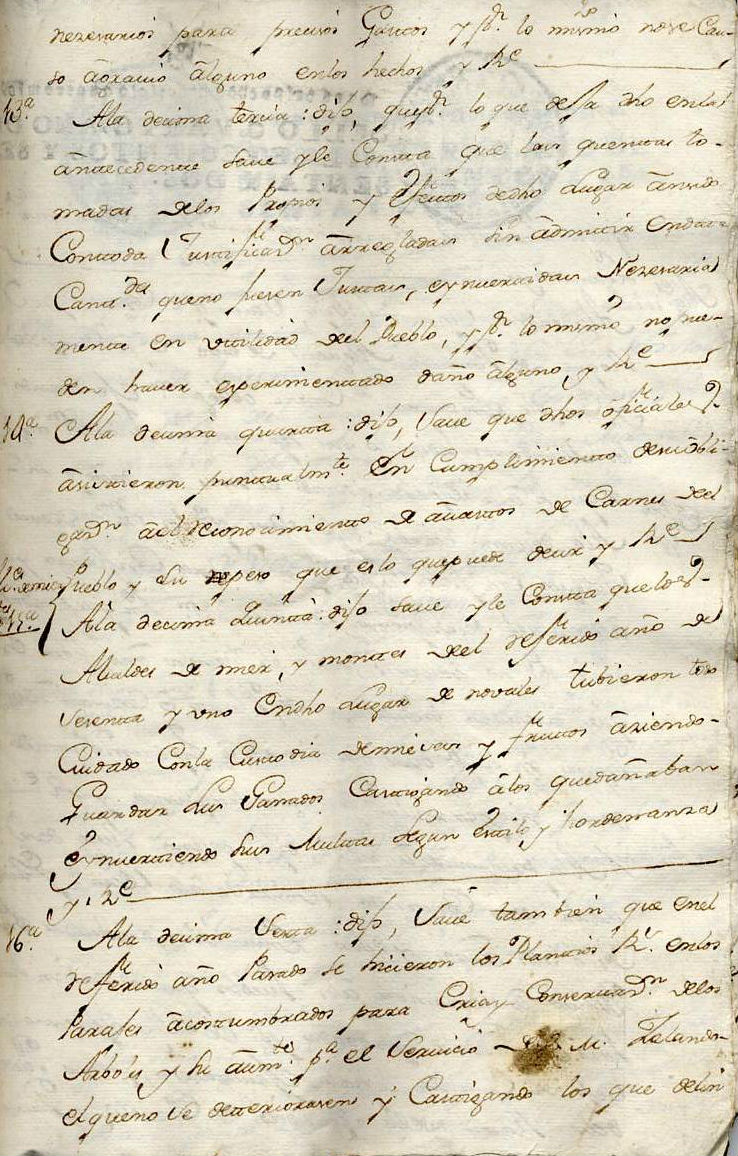 nezesarios para precisos Gastos y pr. lo mismo no se Cau-
so agravio alguno en los hechos y Re
13.a
Ala decima tercia: dijo, que pr. lo que deja dho en la
antecedente save y le Consta que las quentas to-
madas delos Propios y efectos dedho Lugar an sido
Contoda Justificaon. arregladas sin admitir en data
Cantdad. queno fuesen Justas, eynvertidas Nezesaria
mente en utilidad del Pueblo, y pr. lo mismo no pue-
den haver experimentado daño alguno, y Re
14.a
Ala decima quarta: dijo, save que dhos ofiziales
asistieron puntualmte. en Cumplimiento desu obli-
gaon. al reconocimiento de avastos de Carnes del
Pueblo y su peso que es lo quepuede decir y Re
15.a
Ala decima Quinta: dijo save y le Consta que los
Alcaldes de mier, y montes del referido año de
sesenta y uno en dho Lugar de novales tubieron todo
Cuidado Conla Custodia demieses y frutos aziendo-
Guardar sus Ganados Castigando alos quedañaban
eynvertiendo sus Multas segun estilo y hordenanza
y Re
16.a
Ala decima sexta: dijo, save tambien que enel
referido año Pasado se hicieron los Plantios Rs. enlos
Parajes acostumbrados para Cria y Conservaon. delos
Arboles y su aumto. pa. el servicio de S. M. Zelando
el queno se deteriorasen y Castigando los que delin